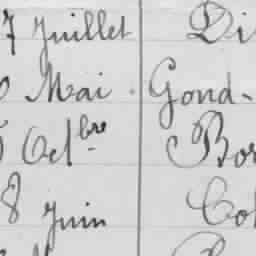 7 Juillet Di
Mai. Gond-
Oct^bre Bor
8 Juin Col